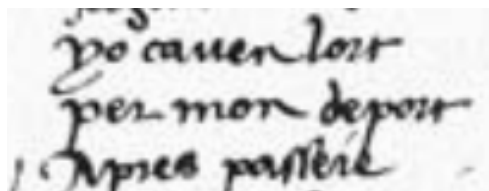 yo cauen lort
per mon deport
Apres passere